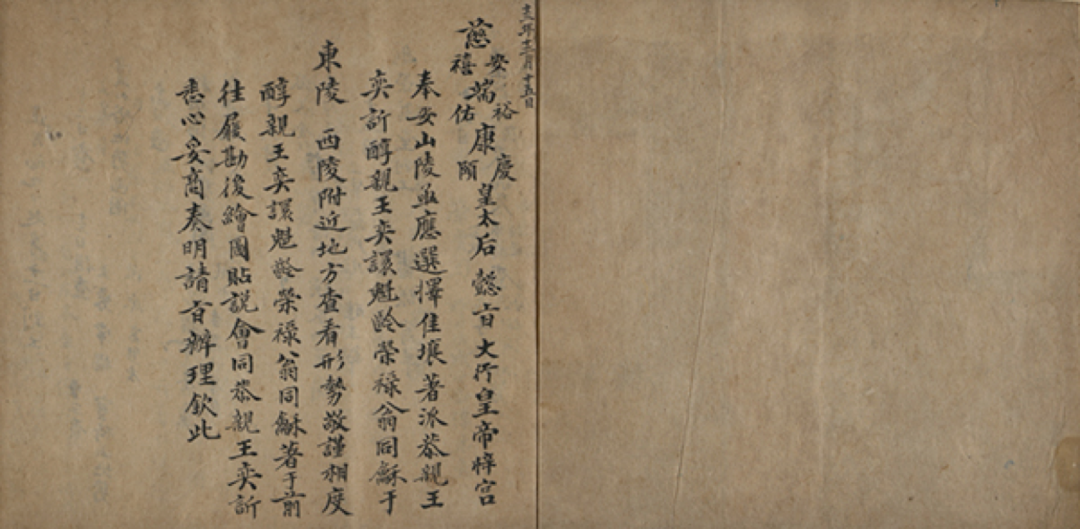 十三年十二月十五日
慈安禧端裕佑康慶頤皇太后懿旨大行皇帝梓宮
奉安山陵亟應選擇佳壤著派恭親王
奕訢醇親王奕譞魁齡榮祿翁同龢于
東陵 西陵附近地方查看形勢敬謹相度
醇親王奕譞魁齡榮祿翁同龢著于前
往履勘後繪圖貼説會同恭親王奕訢
悉心妥商奏明請旨辦理欽此